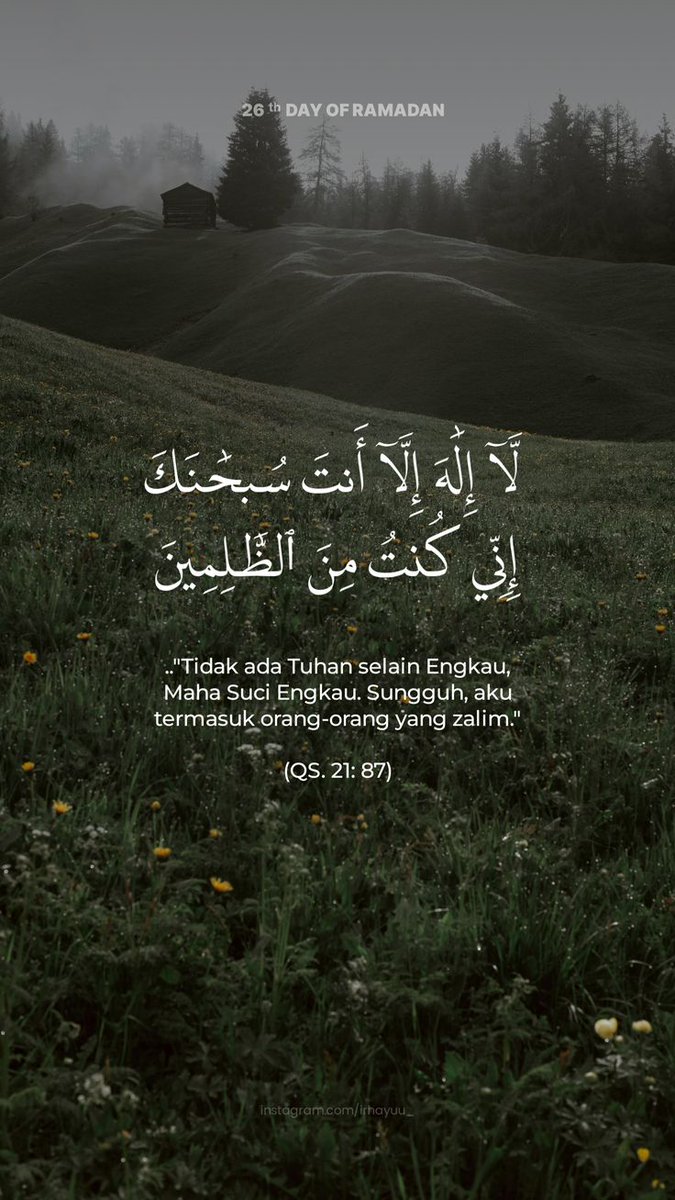 26 th DAY OF RAMADAN
لَّآ إِلَٰهَ إِلَّآ أَنتَ سُبْحَٰنَكَ
إِنِّي كُنتُ مِنَ ٱلظَّٰلِمِينَ
.."Tidak ada Tuhan selain Engkau,
Maha Suci Engkau. Sungguh, aku
termasuk orang-orang yang zalim."
(QS. 21: 87)
instagram.com/irhayuu_